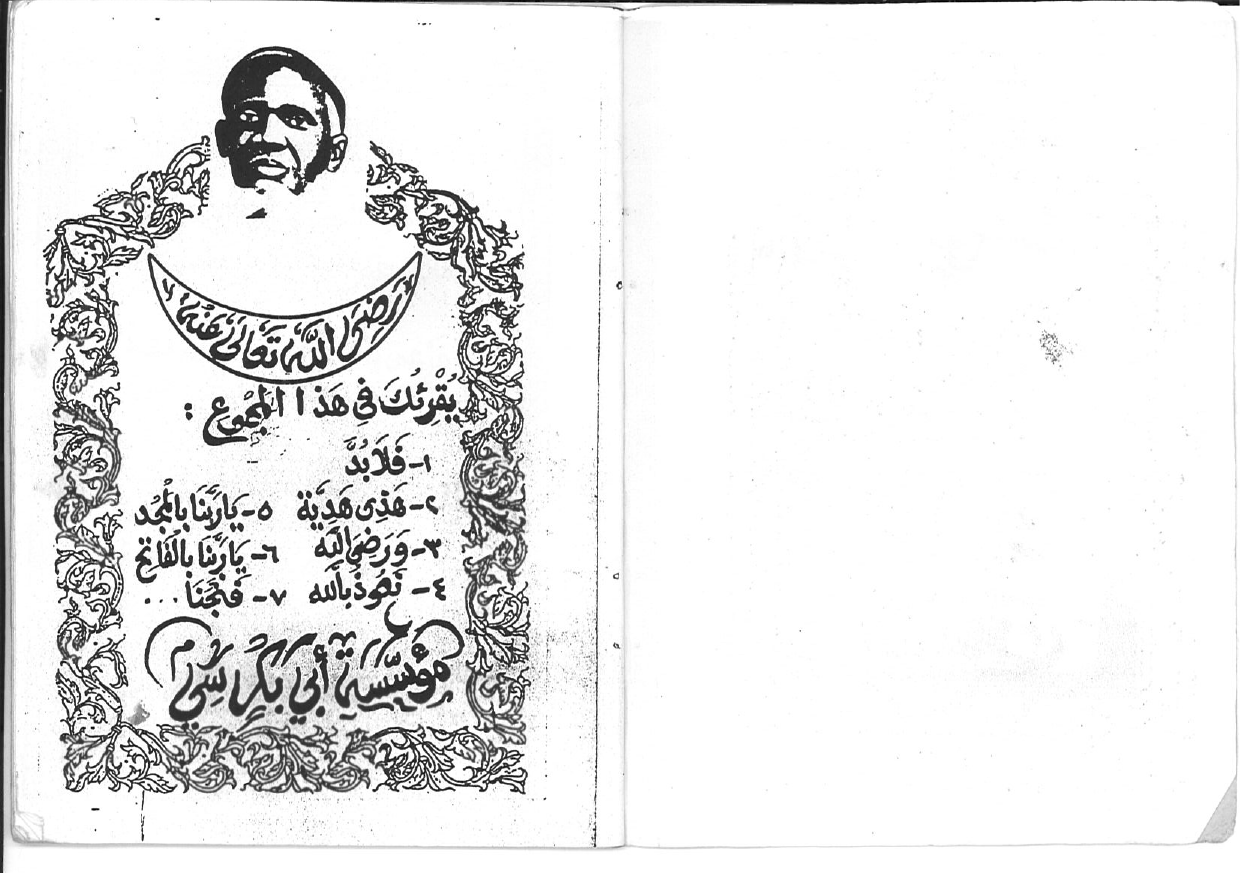 رَضِىَ اللَّهُ تَعَالَى عَنْهُ
يُقْرِئُكَ فِي هَذَا الْمَجْمُوعِ :
١- فَلَابُدَّ
٢- هَذِى هَدِيَّة ٥- يَارَبَّنَا بِالْمَجْدِ
٣- وَرَضِيَ اللَّه ٦- يَارَبَّنَا بِالْفَاتِحِ
٤- نَعُوذُ بِاللَّه ٧- فَنَجِّنَا ...
مُؤَسَّسَةُ أَبِي بَكْرٍ